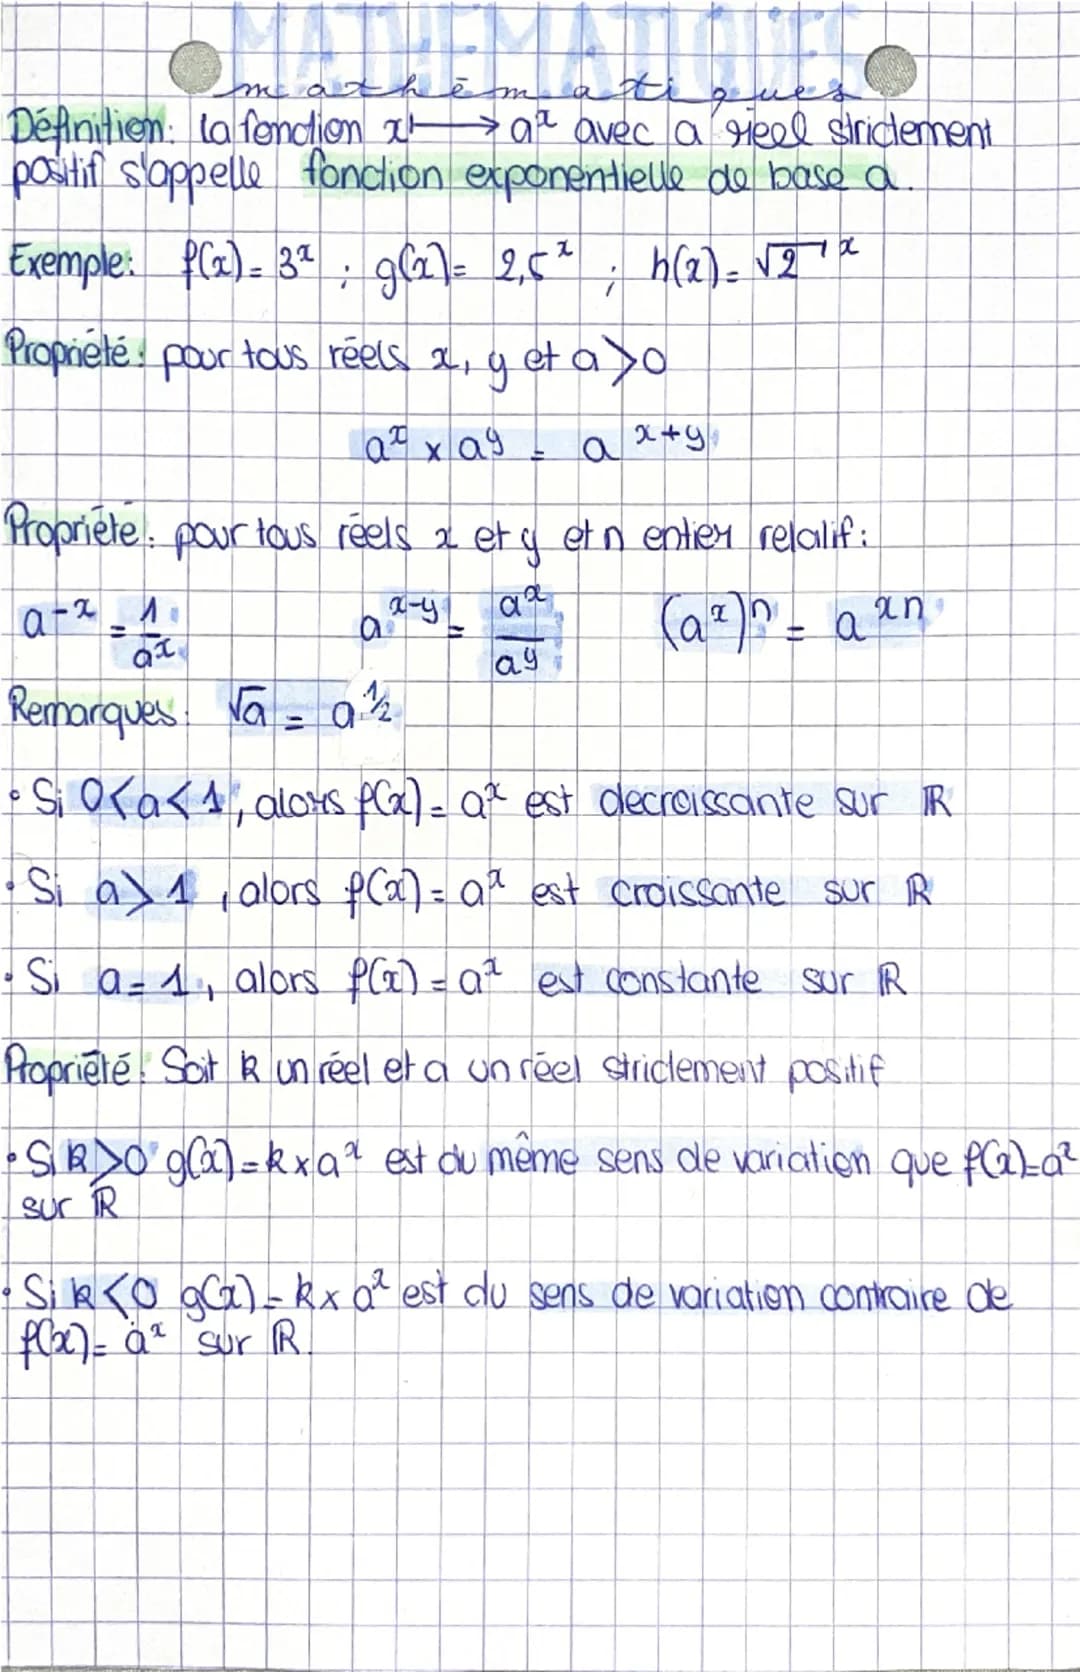 MATHÉMATIQUES
mathématiques
Définition: la fonction x ⟼ aˣ avec a réel strictement
positif s'appelle fonction exponentielle de base a.
Exemple: f(x) = 3ˣ ; g(x) = 2,5ˣ ; h(x) = √2ˣ
Propriété: pour tous réels x, y et a>0
aˣ × aʸ = aˣ⁺ʸ
Propriété: pour tous réels x et y et n entier relatif:
a⁻ˣ = 1/aˣ    aˣ⁻ʸ = aˣ/aʸ    (aˣ)ⁿ = aˣⁿ
Remarques: √a = a^½
• Si 0<a<1, alors f(x) = aˣ est decroissante sur ℝ
• Si a>1, alors f(x) = aˣ est croissante sur ℝ
• Si a=1, alors f(x) = aˣ est constante sur ℝ
Propriété: Soit k un réel et a un réel strictement positif
• Si k>0 g(x) = k×aˣ est du même sens de variation que f(x)=aˣ
sur ℝ
• Si k<0 g(x) = k×aˣ est du sens de variation contraire de
f(x) = aˣ sur ℝ.